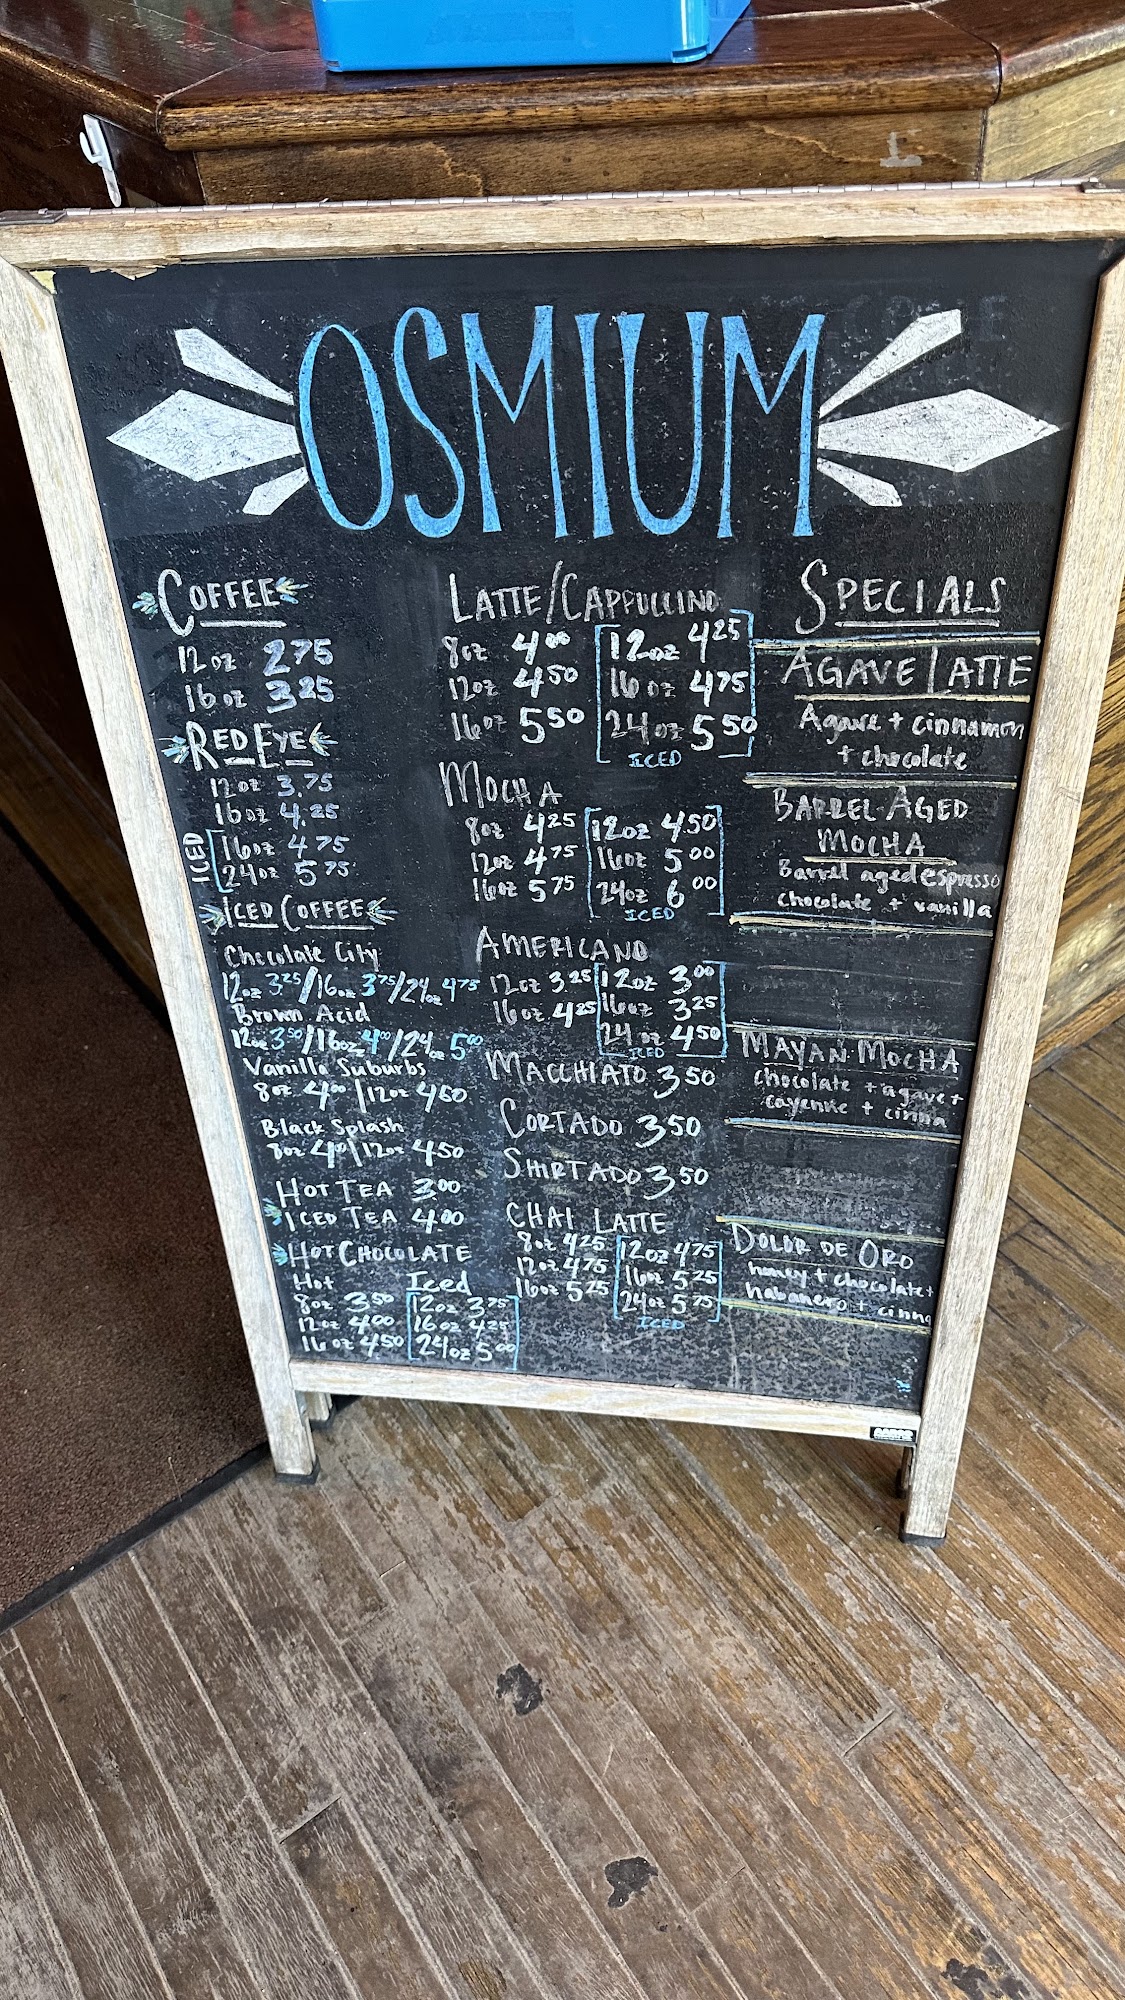 OSMIUM
COFFEE
12oz 2 75
16oz 3 25
RED EYE
12oz 3.75
16oz 4.25
ICED
16oz 4 75
24oz 5 75
ICED COFFEE
Chocolate City
12oz 3 25/16oz 3 75/24oz 4 75
Brown Acid
12oz 3 50/16oz 4 00/24oz 5 00
Vanilla Suburbs
8oz 4 00/12oz 4 50
Black Splash
8oz 4 00/12oz 4 50
HOT TEA 3.00
ICED TEA 4.00
HOT CHOCOLATE
Hot Iced
8oz 3 50 12oz 3 75
12oz 4 00 16oz 4 25
16oz 4 50 24oz 5 00
LATTE/CAPPUCCINO
8oz 4 00 12oz 4 25
12oz 4 50 16oz 4 75
16oz 5 50 24oz 5 50
ICED
MOCHA
8oz 4 25 12oz 4 50
12oz 4 75 16oz 5 00
16oz 5 75 24oz 6 00
ICED
AMERICANO
12oz 3 25 12oz 3 00
16oz 4 25 16oz 3 25
24oz 4 50
ICED
MACCHIATO 3 50
CORTADO 3 50
SHIRTADO 3 50
CHAI LATTE
8oz 4 25 12oz 4 75
12oz 4 75 16oz 5 25
16oz 5 25 24oz 5 75
ICED
SPECIALS
AGAVE LATTE
Agave + cinnamon
+ chocolate
BARREL-AGED
MOCHA
Barrel aged espresso
chocolate + vanilla
MAYAN MOCHA
chocolate + agave +
cayenne + cinna
DOLOR DE ORO
honey + chocolate +
habanero + cinna